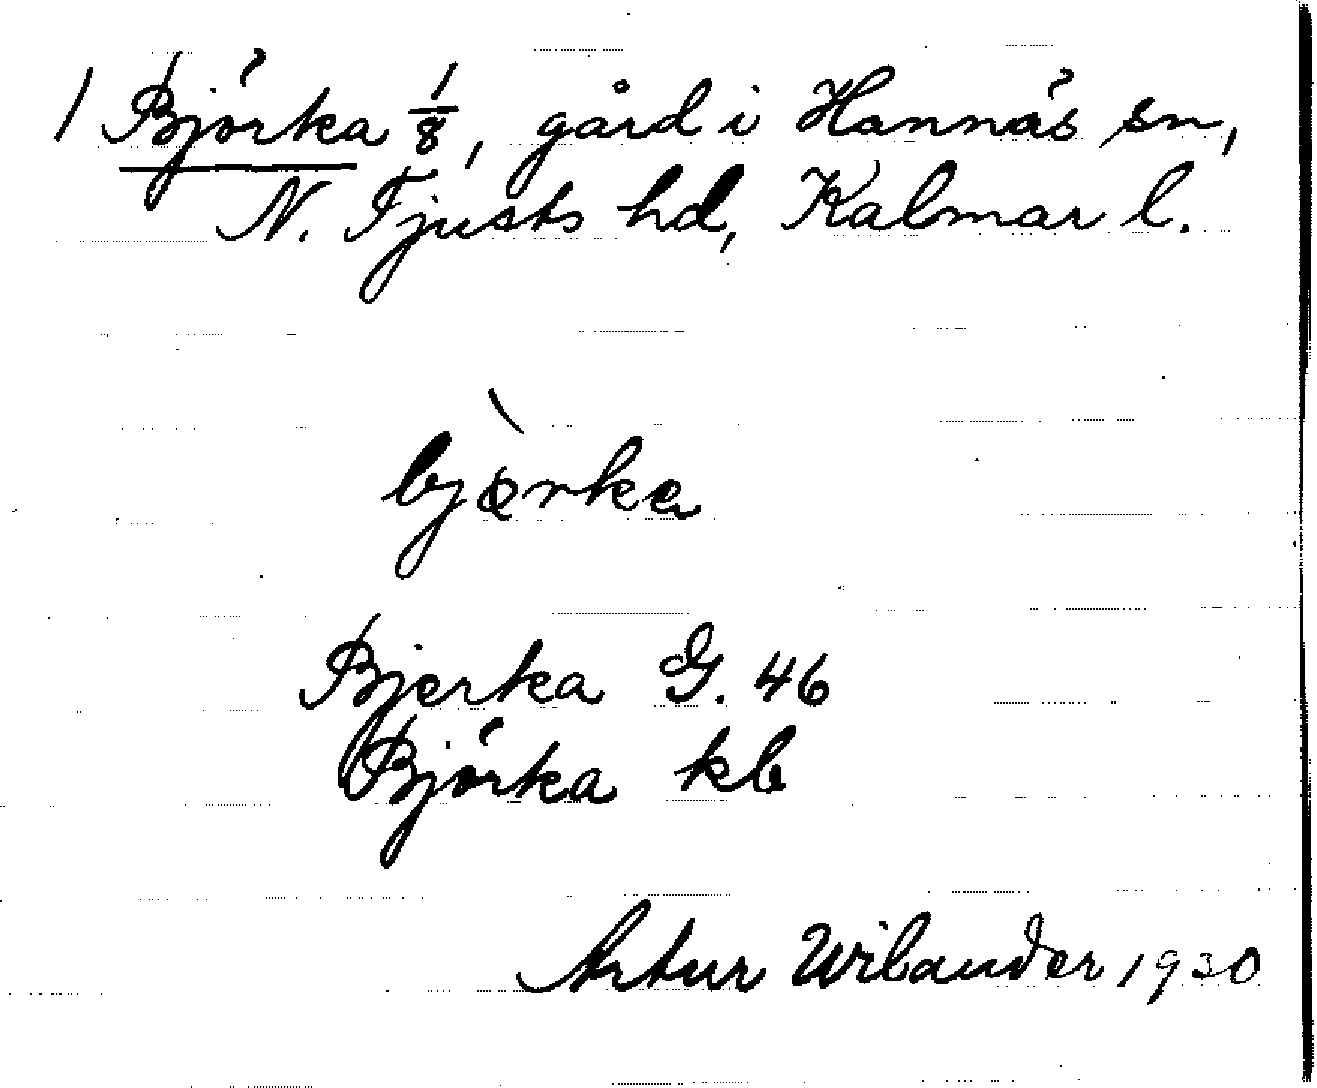 1 Björka 1/8, gård i Hannäs sn,
N. Tjusts hd, Kalmar l.
bjὼrka
Bjerka G. 46
Björka kb
Artur Wilander 1930